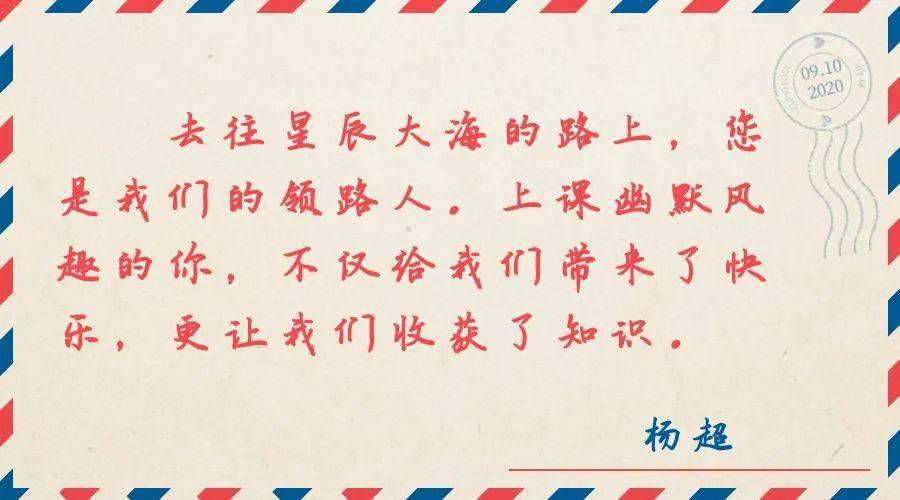 去往星辰大海的路上，您
是我们的领路人。上课幽默风
趣的你，不仅给我们带来了快
乐，更让我们收获了知识。
杨超
09.10
2020